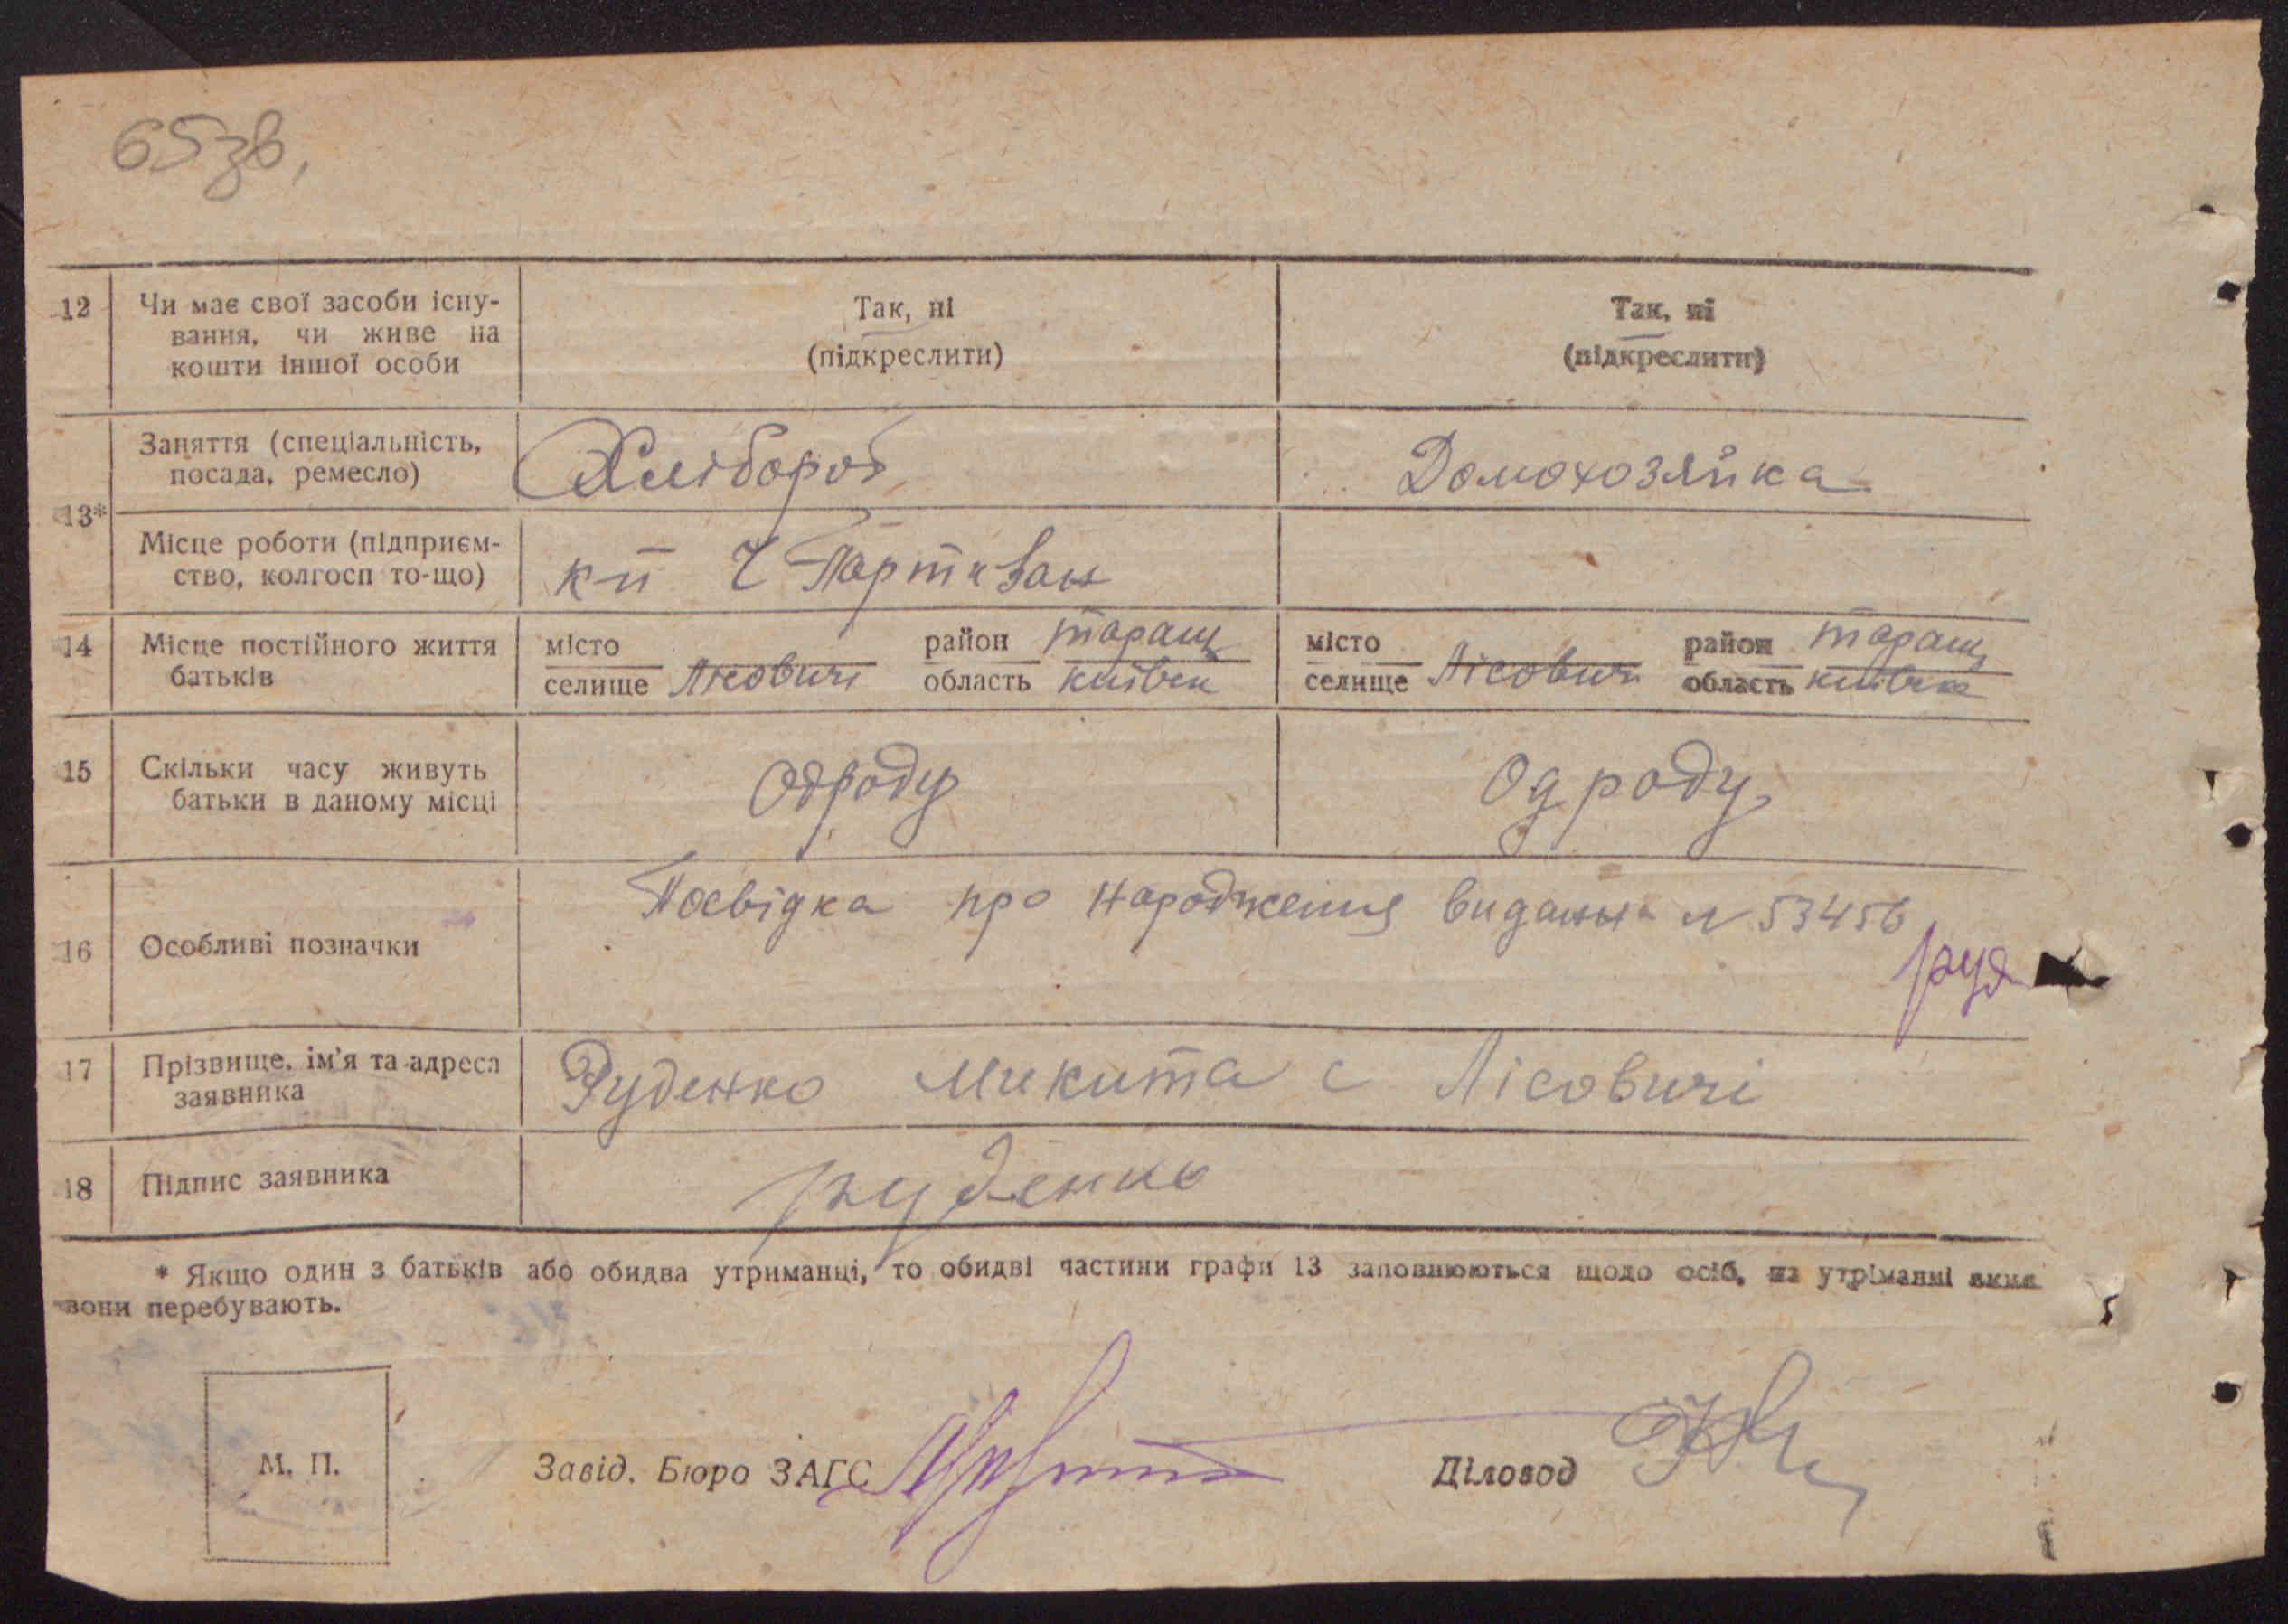 65 зв.
12 Чи має свої засоби існу- Так, ні Так, ні
вання, чи живе на (підкреслити) (підкреслити)
кошти іншої особи
13* Заняття (спеціальність, Хлібороб Домохозяйка
посада, ремесло)
Місце роботи (підприєм- кп Ч Партизан
ство, колгосп то-що)
14 Місце постійного життя місто район таращ місто район таращ
батьків селище Лісовичі область київськ селище Лісович область київськ
15 Скільки часу живуть Одроду Од роду
батьки в даному місці
Посвідка про народження видана № 53456
16 Особливі позначки
руд
17 Прізвище, ім'я та адреса Руденко Микита с Лісовичі
заявника
18 Підпис заявника руденко
* Якщо один з батьків або обидва утриманці, то обидві частини графи 13 заповнюються щодо осіб, на утріманні яких
вони перебувають.
М. П. Завід. Бюро ЗАГС Діловод